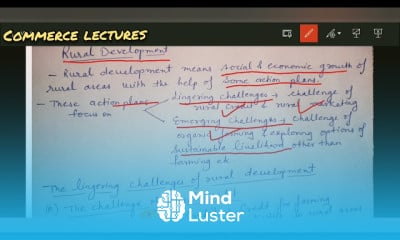 COMMERCE LECTURES
Rural Development
- Rural development means social & economic growth of
rural areas with the help of some action plans.
- These action plans focus on
lingering challenges → challenge of
rural credit & rural marketing
Emerging challenges → challenge of
organic farming & exploring options of
sustainable livelihood other than
farming etc
The lingering challenges of rural development
The challenge of
Credit for farming
rural areas
Mind
Luster